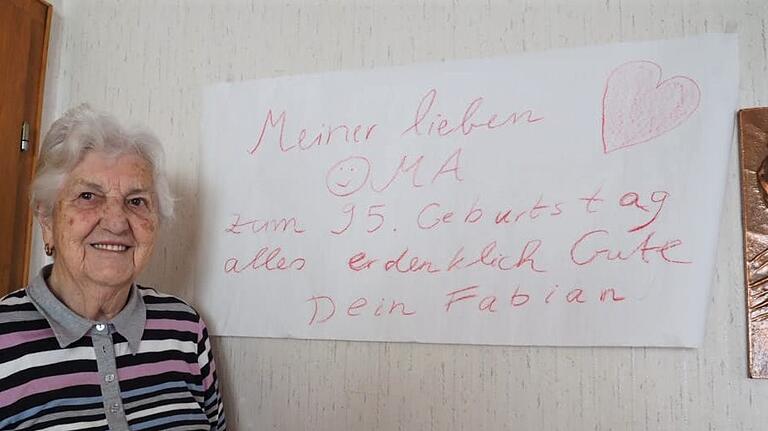 Meiner lieben
OMA
zum 95. Geburtstag
alles erdenklich Gute
Dein Fabian